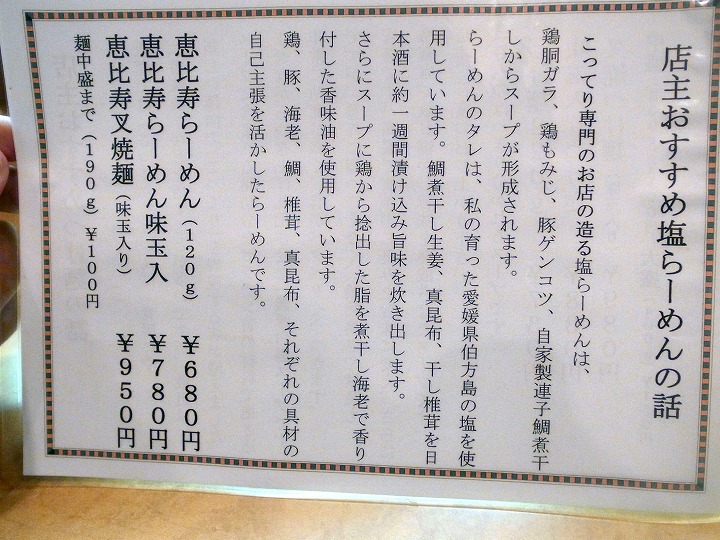 店主おすすめ塩らーめんの話
こってり専門のお店の造る塩らーめんは、
鶏胴ガラ、鶏もみじ、豚ゲンコツ、自家製連子鯛煮干
しからスープが形成されます。
らーめんのタレは、私の育った愛媛県伯方島の塩を使
用しています。鯛煮干し生姜、真昆布、干し椎茸を日
本酒に約一週間漬け込み旨味を炊き出します。
さらにスープに鶏から捻出した脂を煮干し海老で香り
付した香味油を使用しています。
鶏、豚、海老、鯛、椎茸、真昆布、それぞれの具材の
自己主張を活かしたらーめんです。
恵比寿らーめん（120g） ￥680円
恵比寿らーめん味玉入 ￥780円
恵比寿叉焼麺（味玉入り） ￥950円
麺中盛まで（190g）￥100円